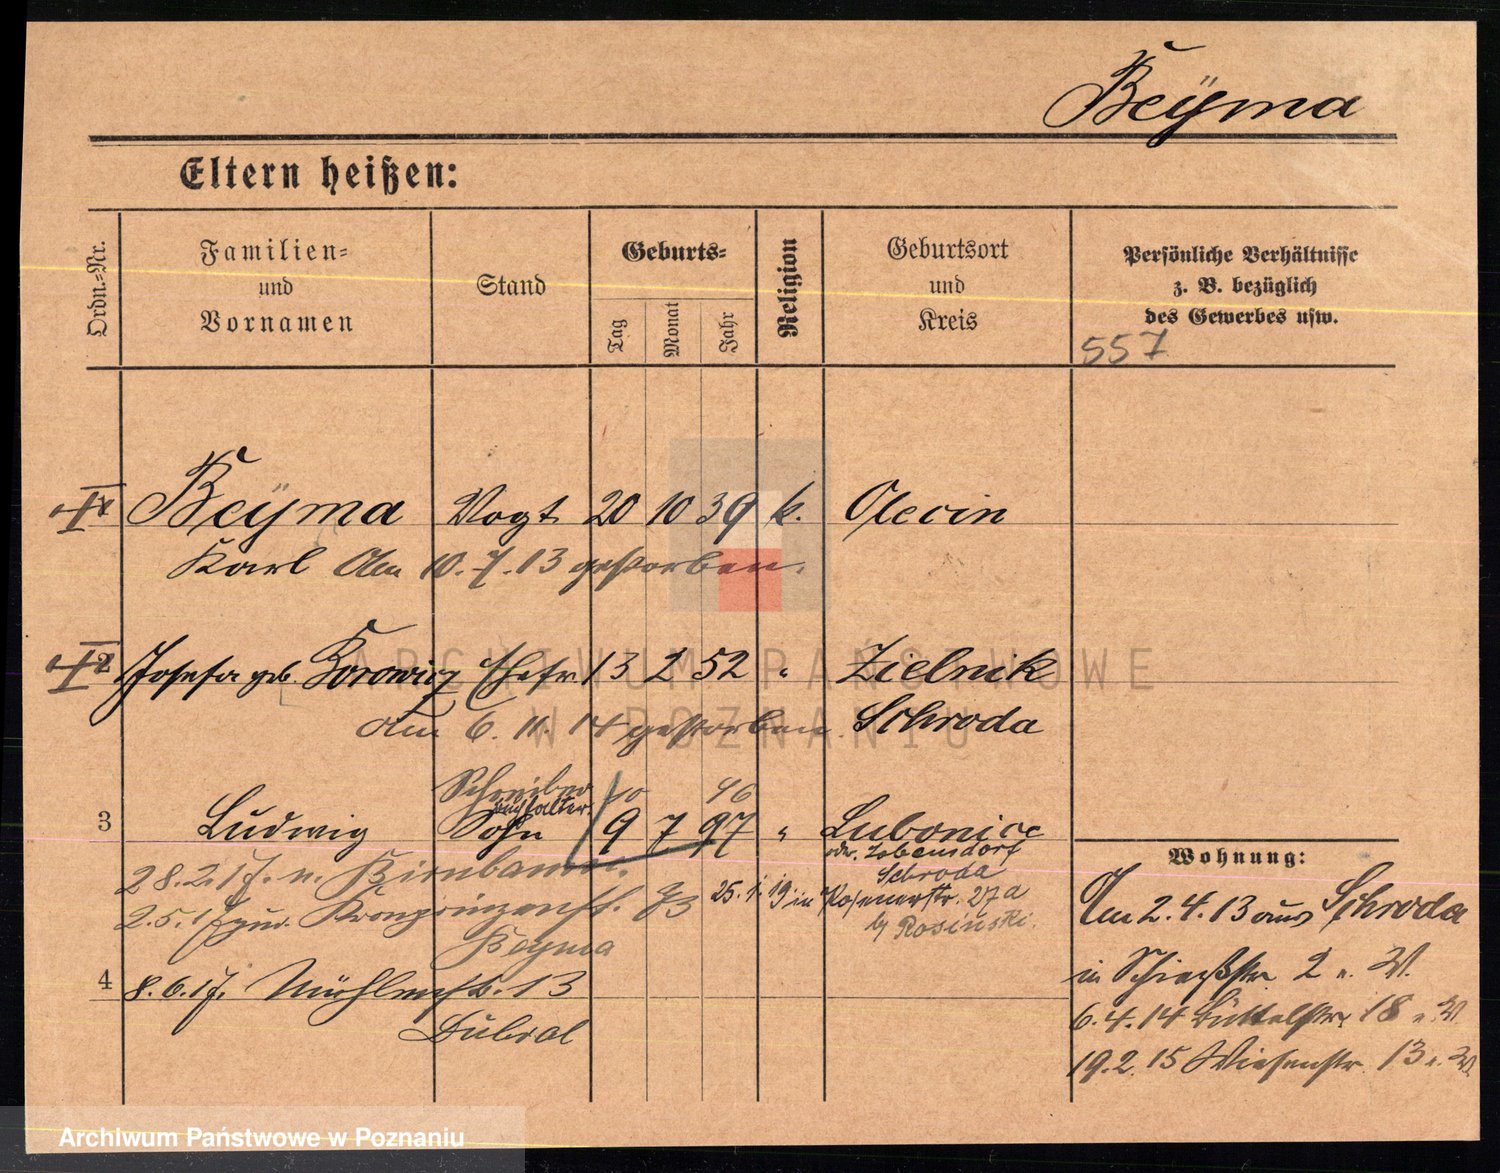 Beÿma
Eltern heißen:
Ordn.-Nr.
Familien-
und
Vornamen
Stand
Geburts-
Tag
Monat
Jahr
Religion
Geburtsort
und
Kreis
Persönliche Verhältnisse
z. B. bezüglich
des Gewerbes usw.
557
1 Beÿma Vogt 20 10 39 k. Olecin
Karl Am 10.7.13 gestorben.
2 Josefa geb. Korowicz Ehefr 13 2 52 " Zielnik
am 6. 11. 14 gestorben. Schroda
Schreiber 10 96
Buchhalter
3 Ludwig Sohn 19 7 97 " Lubonice
od. Lobensdorf
Schroda
28.2.17. n. Birnbaum.
2.5.17 zur. Kronprinzenstr. 83 25.1.19 in Posenerstr. 27a
by Rosinski.
Beyma
4 8.6.17. Mühlenstr. 13
Dubral
Wohnung:
Am 2.4.13 aus Schroda
in Schießstr 2 n. W.
6.4.14 Büttelstr 18 n. W.
19.2.15 Wiesenstr. 13 n. W.
ARCHIWUM PAŃSTWOWE
W POZNANIU
Archiwum Państwowe w Poznaniu